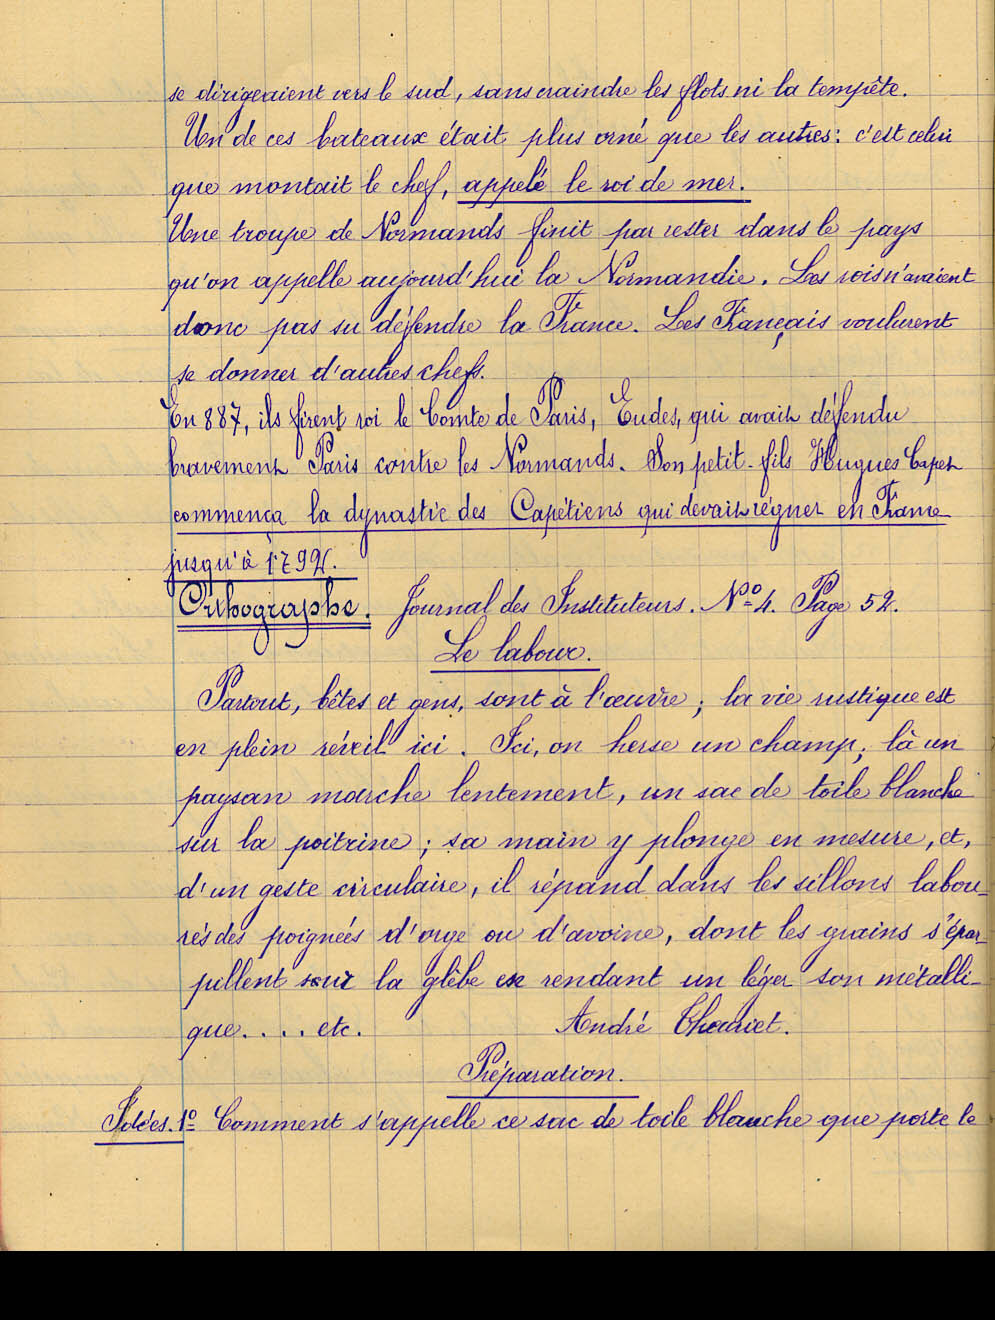 se dirigeaient vers le sud, sans craindre les flots ni la tempête.
Un de ces bateaux était plus orné que les autres: c'est celui
que montait le chef, appelé le roi de mer.
Une troupe de Normands finit par rester dans le pays
qu'on appelle aujourd'hui la Normandie. Les rois n'avaient
donc pas su défendre la France. Les Français voulurent
se donner d'autres chefs.
En 887, ils firent roi le Comte de Paris, Eudes, qui avait défendu
bravement Paris contre les Normands. Son petit-fils Hugues Capet
commença la dynastie des Capétiens qui devait régner en France
jusqu'à 1792.
Orthographe. Journal des Instituteurs. Nº 4. Page 52.
Le labour.
Partout, bêtes et gens, sont à l'œuvre; la vie rustique est
en plein réveil ici. Ici, on herse un champ; là un
paysan marche lentement, un sac de toile blanche
sur la poitrine; sa main y plonge en mesure, et,
d'un geste circulaire, il répand dans les sillons labou-
rés des poignées d'orge ou d'avoine, dont les grains s'épar-
pillent sur la glèbe en rendant un léger son métalli-
que.... etc. André Theuriet.
Préparation.
Idées. 1º Comment s'appelle ce sac de toile blanche que porte le